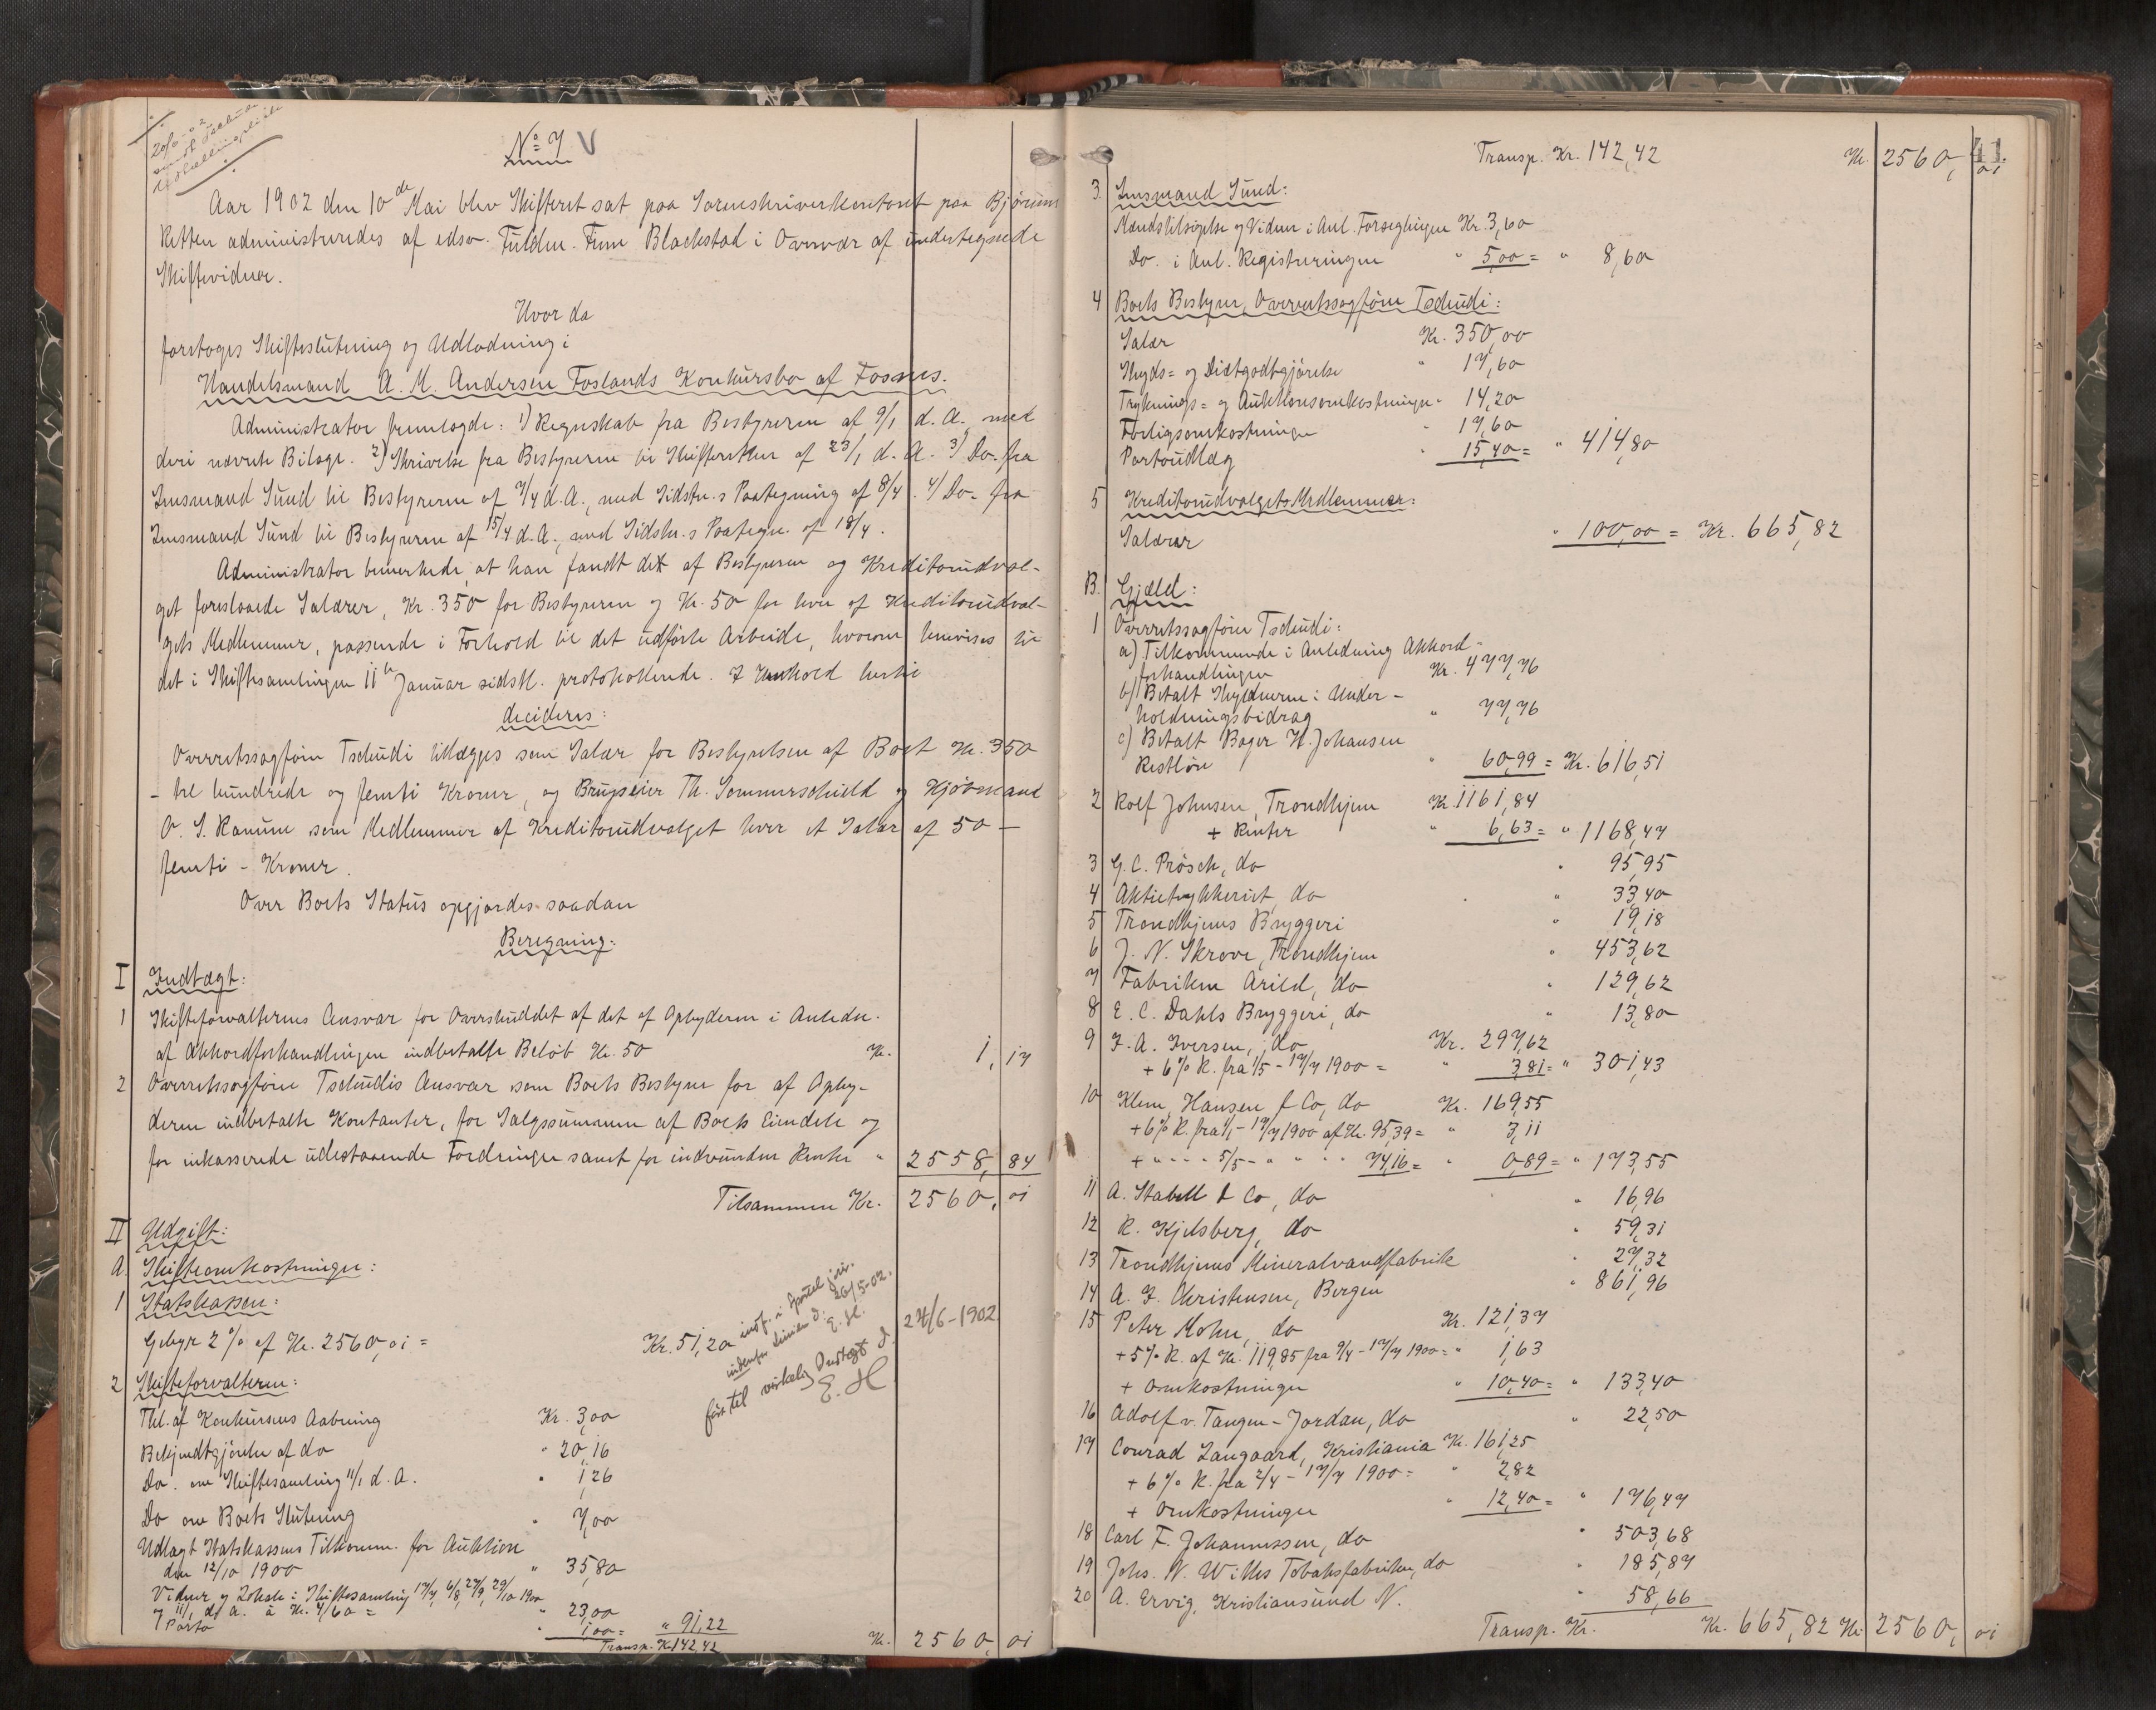 20/6-02
sendt Tschudi
Udlodningsliste
No 7 V
Aar 1902 den 10de Mai blev Skifteret sat paa Sorenskriverkontoret paa Bjørum
Retten administreredes af edsv. Fuldm. Finn Blackstad i Overvær af undertegnede
Skiftevidner.
Hvor da
foretoges Skifteslutning og Udlodning i
Handelsmand A. M. Andersen Foslands Konkursbo af Fosnes.
Administrator fremlagde: 1) Regnskab fra Bestyreren af 9/1 d. A. med
deri nævnte Bilage. 2) Skrivelse fra Bestyreren til Skifteretten af 23/1 d. A. 3) Do. fra
Lensmand Sund til Bestyreren af 7/4 d. A., med Sidstn.s Paategning af 8/4. 4) Do. fra
Lensmand Sund til Bestyreren af 15/4 d. A., med Sidstn.s Paategn. af 18/4.
Administrator bemerkede, at han fandt det af Bestyreren og Kreditorudval-
get foreslaaede Salærer, Kr. 350 for Bestyreren og Kr. 50 for hver af Kreditorudval-
gets Medlemmer, passende i Forhold til det udførte Arbeide, hvorom henvises til
det i Skiftesamlingen 11te Januar sidstl. protokollerede. I Henhold hertil
decideres:
Overretssagfører Tschudi tillægges som Salær for Bestyrelsen af Boet Kr. 350
- tre hundrede og femti Kroner, og Brugseier Th. Sommerschield og Kjøbmand
O. S. Ranum som Medlemmer af Kreditorudvalget hver et Salær af 50 -
femti - Kroner.
Over Boets Status opgjordes saadan
Beregning:
I Indtægt:
1 Skifteforvalterens Ansvar for Overskuddet af det af Opbyderen i Anledn.
af Akkordforhandlingen indbetalte Beløb Kr. 50 Kr. 1, 17
2 Overretssagfører Tschudis Ansvar som Boets Bestyrer for af Opby-
deren indbetalte Kontanter, for Salgssummen af Boets Eiendele og
for inkasserede udestaaende Fordringer samt for indvundne Renter " 2558, 84
Tilsammen Kr. 2560, 01
II Udgift:
A. Skifteomkostninger:
1 Statskassen:
Gebyr 2 % af Kr. 2560,01 = Kr. 51,20 indf. i Sportel jrn.
indenfor Linien d. 26/5-02.
E. H.
24/6-1902
ført til virkelig Indtægt d.
E. H
2 Skifteforvalteren:
Thl. af Konkursens Aabning Kr. 3,00
Bekjendtgjørelse af do " 20,16
Do. om Skiftesamling 11/1 d. A. " 1,26
Do om Boets Slutning " 7,00
Udlagt Statskassens Tilkomm. for Auktion
den 12/10 1900 " 35,80
Vidner og Lokale i Skiftesamling 17/7, 6/8, 27/9, 29/10 1900
og 11/1 d. A. à Kr. 4/60 = " 23,00
Porto " 1,00 = " 91,22
Transp. Kr. 142,42 Kr. 2560, 01
Transp. Kr. 142,42 Kr. 2560, 01
41.
3. Lensmand Sund:
Mændstilsigelse og Vidner i Anl. Forseglingen Kr. 3,60
Do. i Anl. Registreringen " 5,00 = " 8,60
4 Boets Bestyrer, Overretssagfører Tschudi:
Salær Kr. 350,00
Skyds- og Diætgodtgjørelse " 17,60
Tryknings- og Auktionsomkostninger " 14,20
Forligsomkostninger " 17,60
Portoudlæg " 15,40 = " 414,80
5 Kreditorudvalgets Medlemmer:
Salærer " 100,00 = Kr. 665,82
B. Gjæld:
1 Overretssagfører Tschudi:
a) Tilkommende i Anledning Akkord-
forhandlingen Kr. 477,76
b) Betalt Skyldneren i Under-
holdningsbidrag " 77,76
c) Betalt Bager H. Johansen
Restløn " 60,99 = Kr. 616,51
2 Rolf Johnsen, Trondhjem Kr. 1161,84
+ Renter " 6,63 = " 1168,47
3 G. C. Prösch, do " 95,95
4 Aktietrykkeriet, do " 33,40
5 Trondhjems Bryggeri " 19,18
6 J. N. Skrove, Trondhjem " 453,62
7 Fabriken Arild, do " 129,62
8 E. C. Dahls Bryggeri, do " 13,80
9 F. A. Iversen, do Kr. 297,62
+ 6 % R. fra 1/5 - 17/7 1900 = " 3,81 = " 301,43
10 Klem, Hansen & Co, do Kr. 169,55
+ 6 % R. fra 1/1 - 17/7 1900 af Kr. 95,39 = " 3,11
+ " - - - 5/5 - " " " " 74,16 = " 0,89 = " 173,55
11 A. Stabell & Co, do " 16,96
12 R. Kjelsberg, do " 59,31
13 Trondhjems Mineralvandfabrik " 27,32
14 A. F. Christensen, Bergen " 861,96
15 Peter Mohn, do Kr. 121,37
+ 5 % R. af Kr. 119,85 fra 9/4 - 17/7 1900 = " 1,63
+ Omkostninger " 10,40 = " 133,40
16 Adolf v. Tangen-Jordan, do " 22,50
17 Conrad Langaard, Kristiania Kr. 161,25
+ 6 % R. fra 2/4 - 17/7 1900 = " 2,82
+ Omkostninger " 12,40 = " 176,47
18 Carl F. Johannessen, do " 503,68
19 Johs. N. Wilhs Tobaksfabriker, do " 185,87
20 A. Ervig, Kristiansund N. " 58,66
Transp. Kr. Kr. 665,82 Kr. 2560, 01